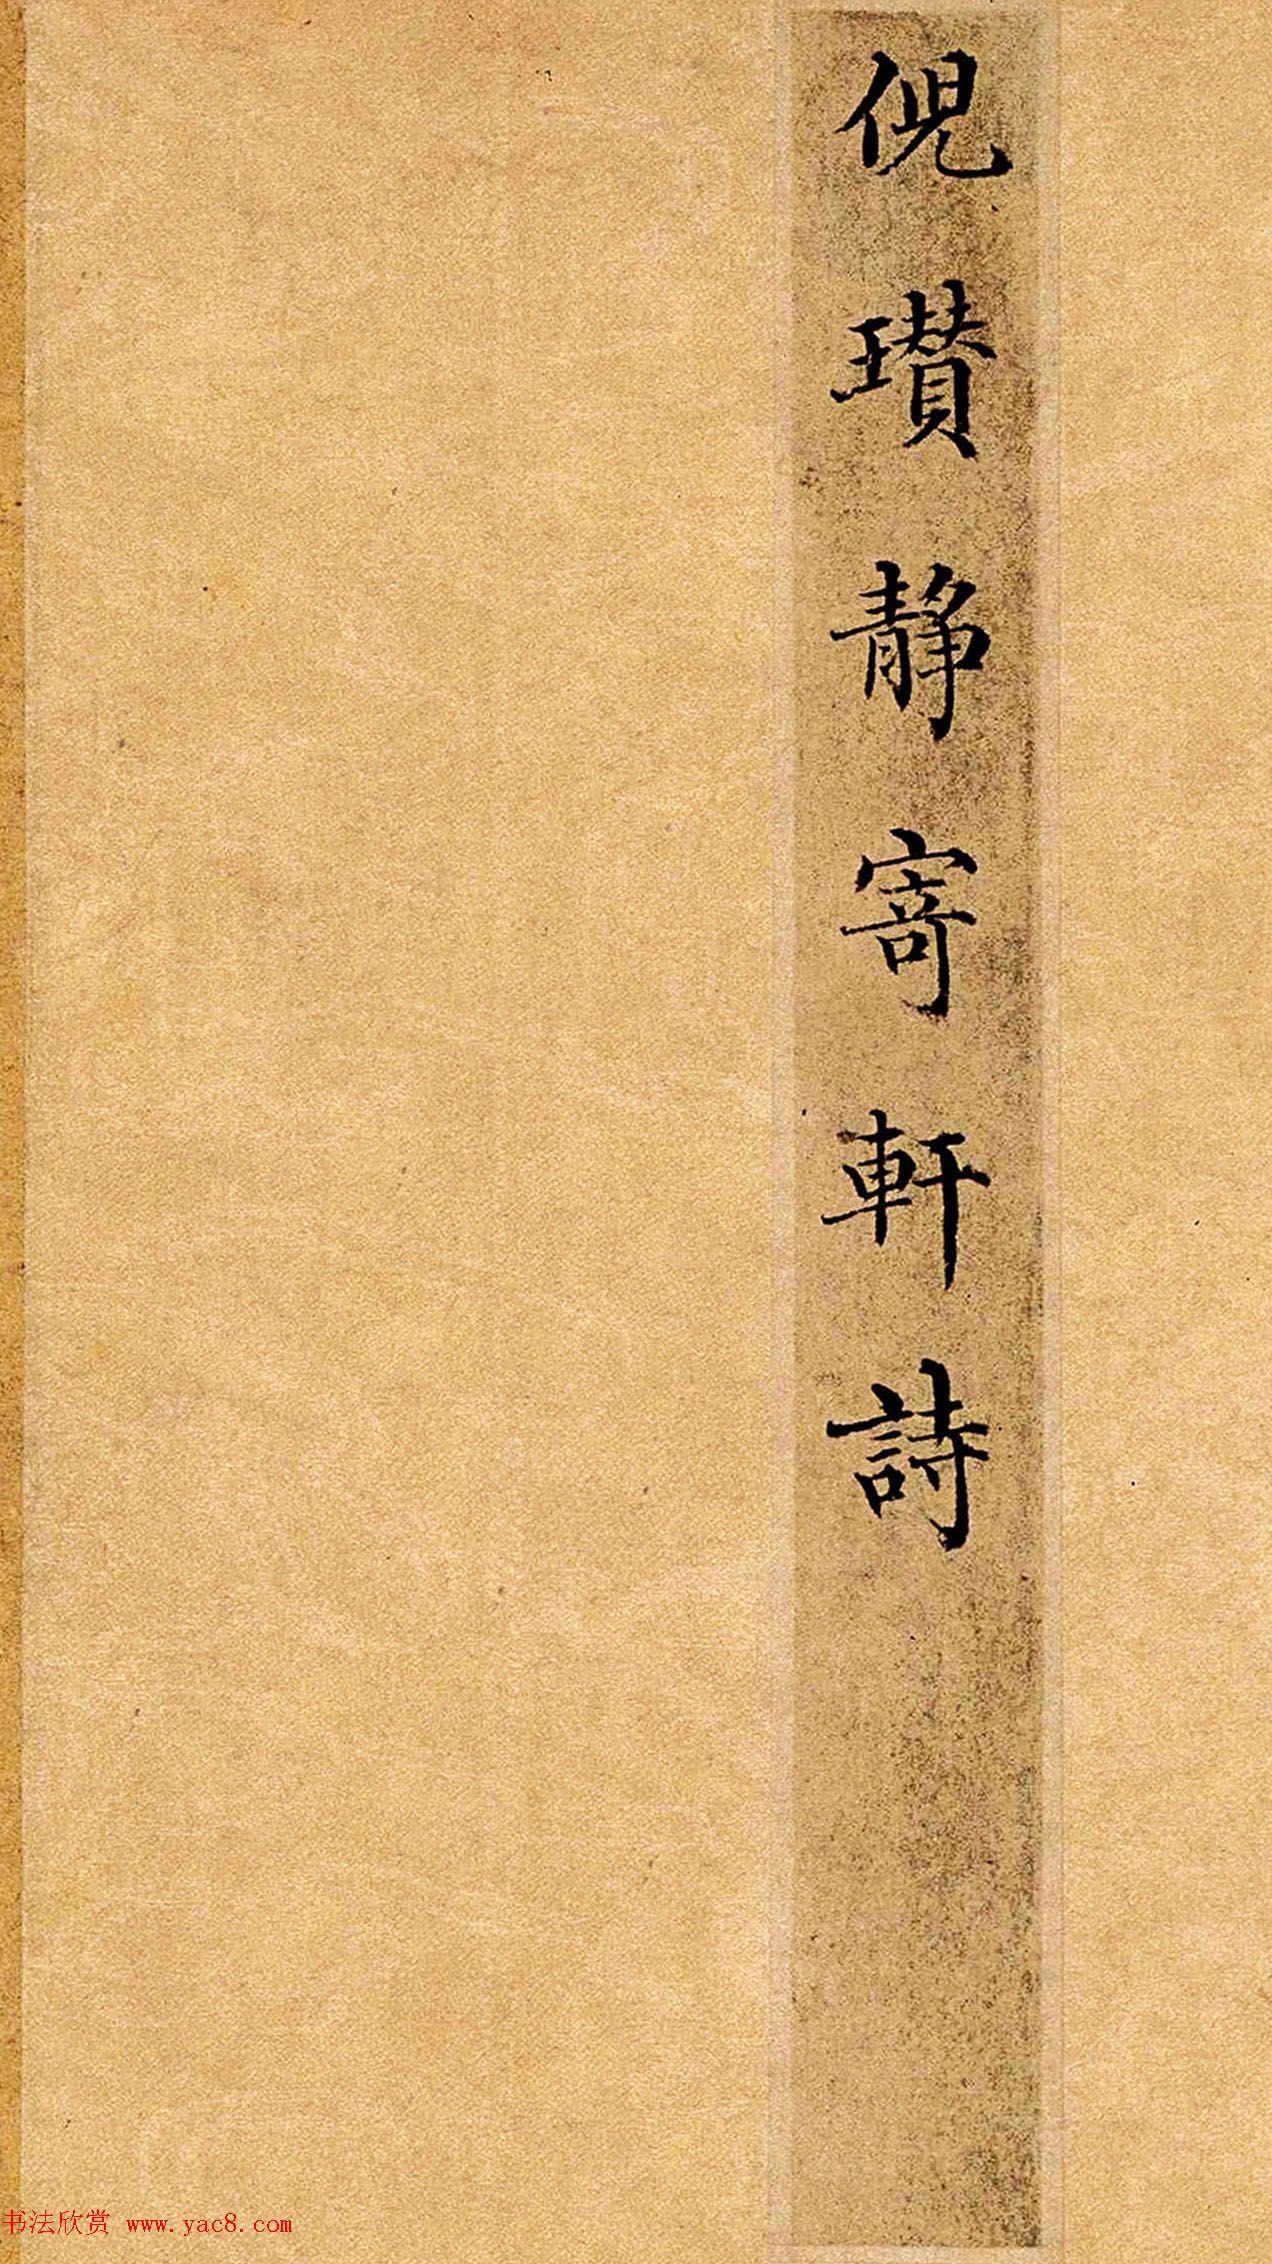 倪瓚靜寄軒詩
书法欣赏 www.yac8.com